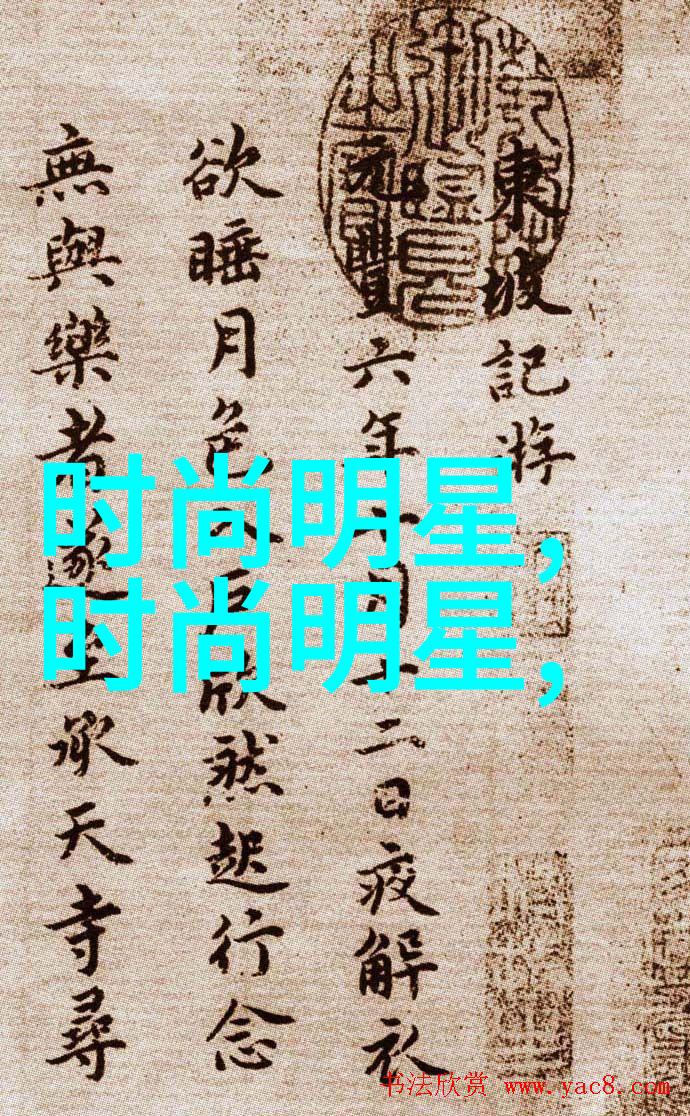 東坡記游
元豐六年十月十二日夜解衣
欲睡月色入户欣然起行念
無與樂者遂至承天寺尋
时尚明星,
时尚明星,
书法欣赏 www.yac8.com